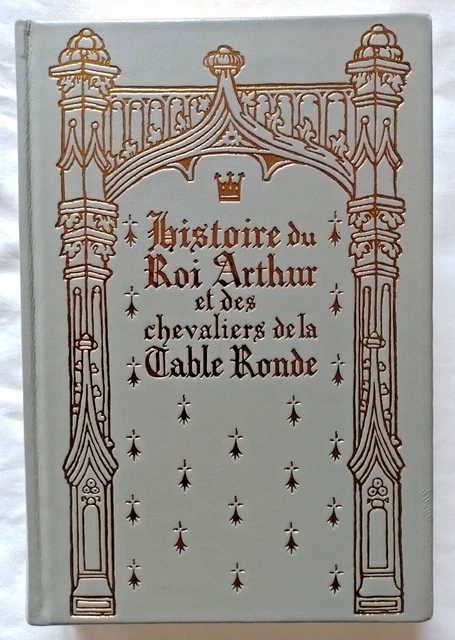 histoire du
Roi Arthur
et des
chevaliers de la
Table Ronde